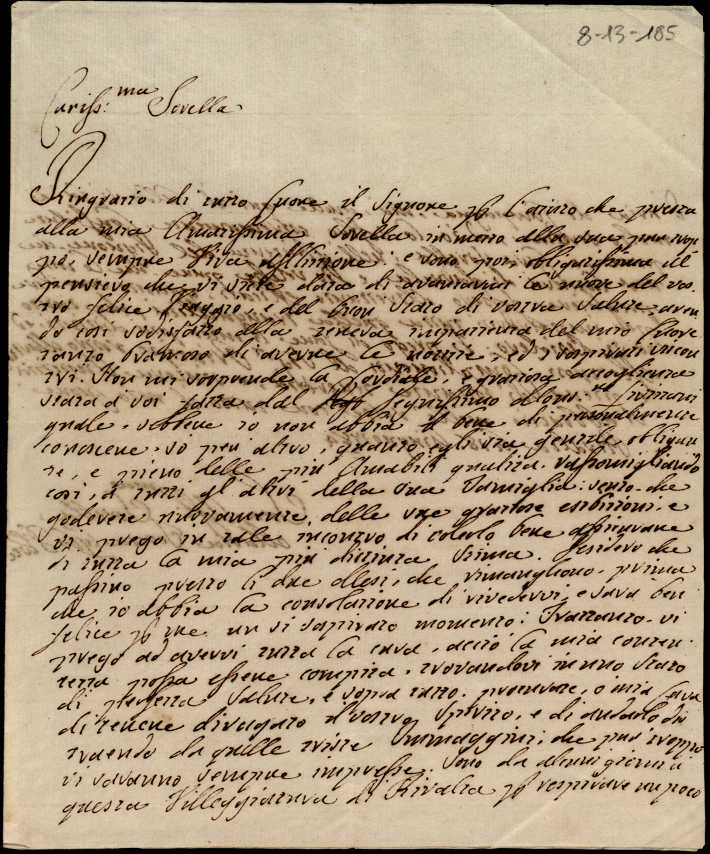 8-13-185
Cariss:ma Sorella
Ringrazio di tutto Cuore il Signore p l'aiuto che presta
alla mia Amatissima Sorella in mezzo alla sua pur trop
po, sempre viva afflizione: e sono poi, obligatissima al
pensiero che vi siete data di avanzarmi le nuove del vos
tro felice viaggio, e del buon stato di vostra Salute, aven
do così sodisfatto alla tenera impazienza del mio Cuore
tanto bramoso di averne le notizie, ed i sospirati riscon
tri. Non mi sorprende la Cordiale, e graziosa accoglienza
stata a voi fatta dal degnissimo Mons:re
quale, sebbene io non abbia il bene di personalmente
conoscere, so per altro, quanto egli sia gentile, obligan
te, e pieno delle più Amabili qualità, rassomigliando
così, a tutti gl'altri della sua Famiglia: sento che
goderete nuovamente, delle sue graziose esibizioni, e
vi prego in tale incontro di colarlo bene assicurare
di tutta la mia più distinta Stima. Desidero che
passino presto li due Mesi, che rimangliono, prima
che io abbia la consolazione di rivedervi, e sarà ben
felice p me un si sospirato momento: Frattanto vi
prego ad avervi tutta la cura, acciò la mia conten
tezza possa essere compita, trovandovi in uno stato
di perfetta Salute, e sopra tutto, procurate, o mia Cara
di tenere divagato il vostro Spirito, e di andarlo dis
traendo da quelle triste Immaggini, che pur troppo
vi saranno sempre impresse. Sono da alcuni giorni a
questa Villeggiatura di Rivalta p respirare un poco